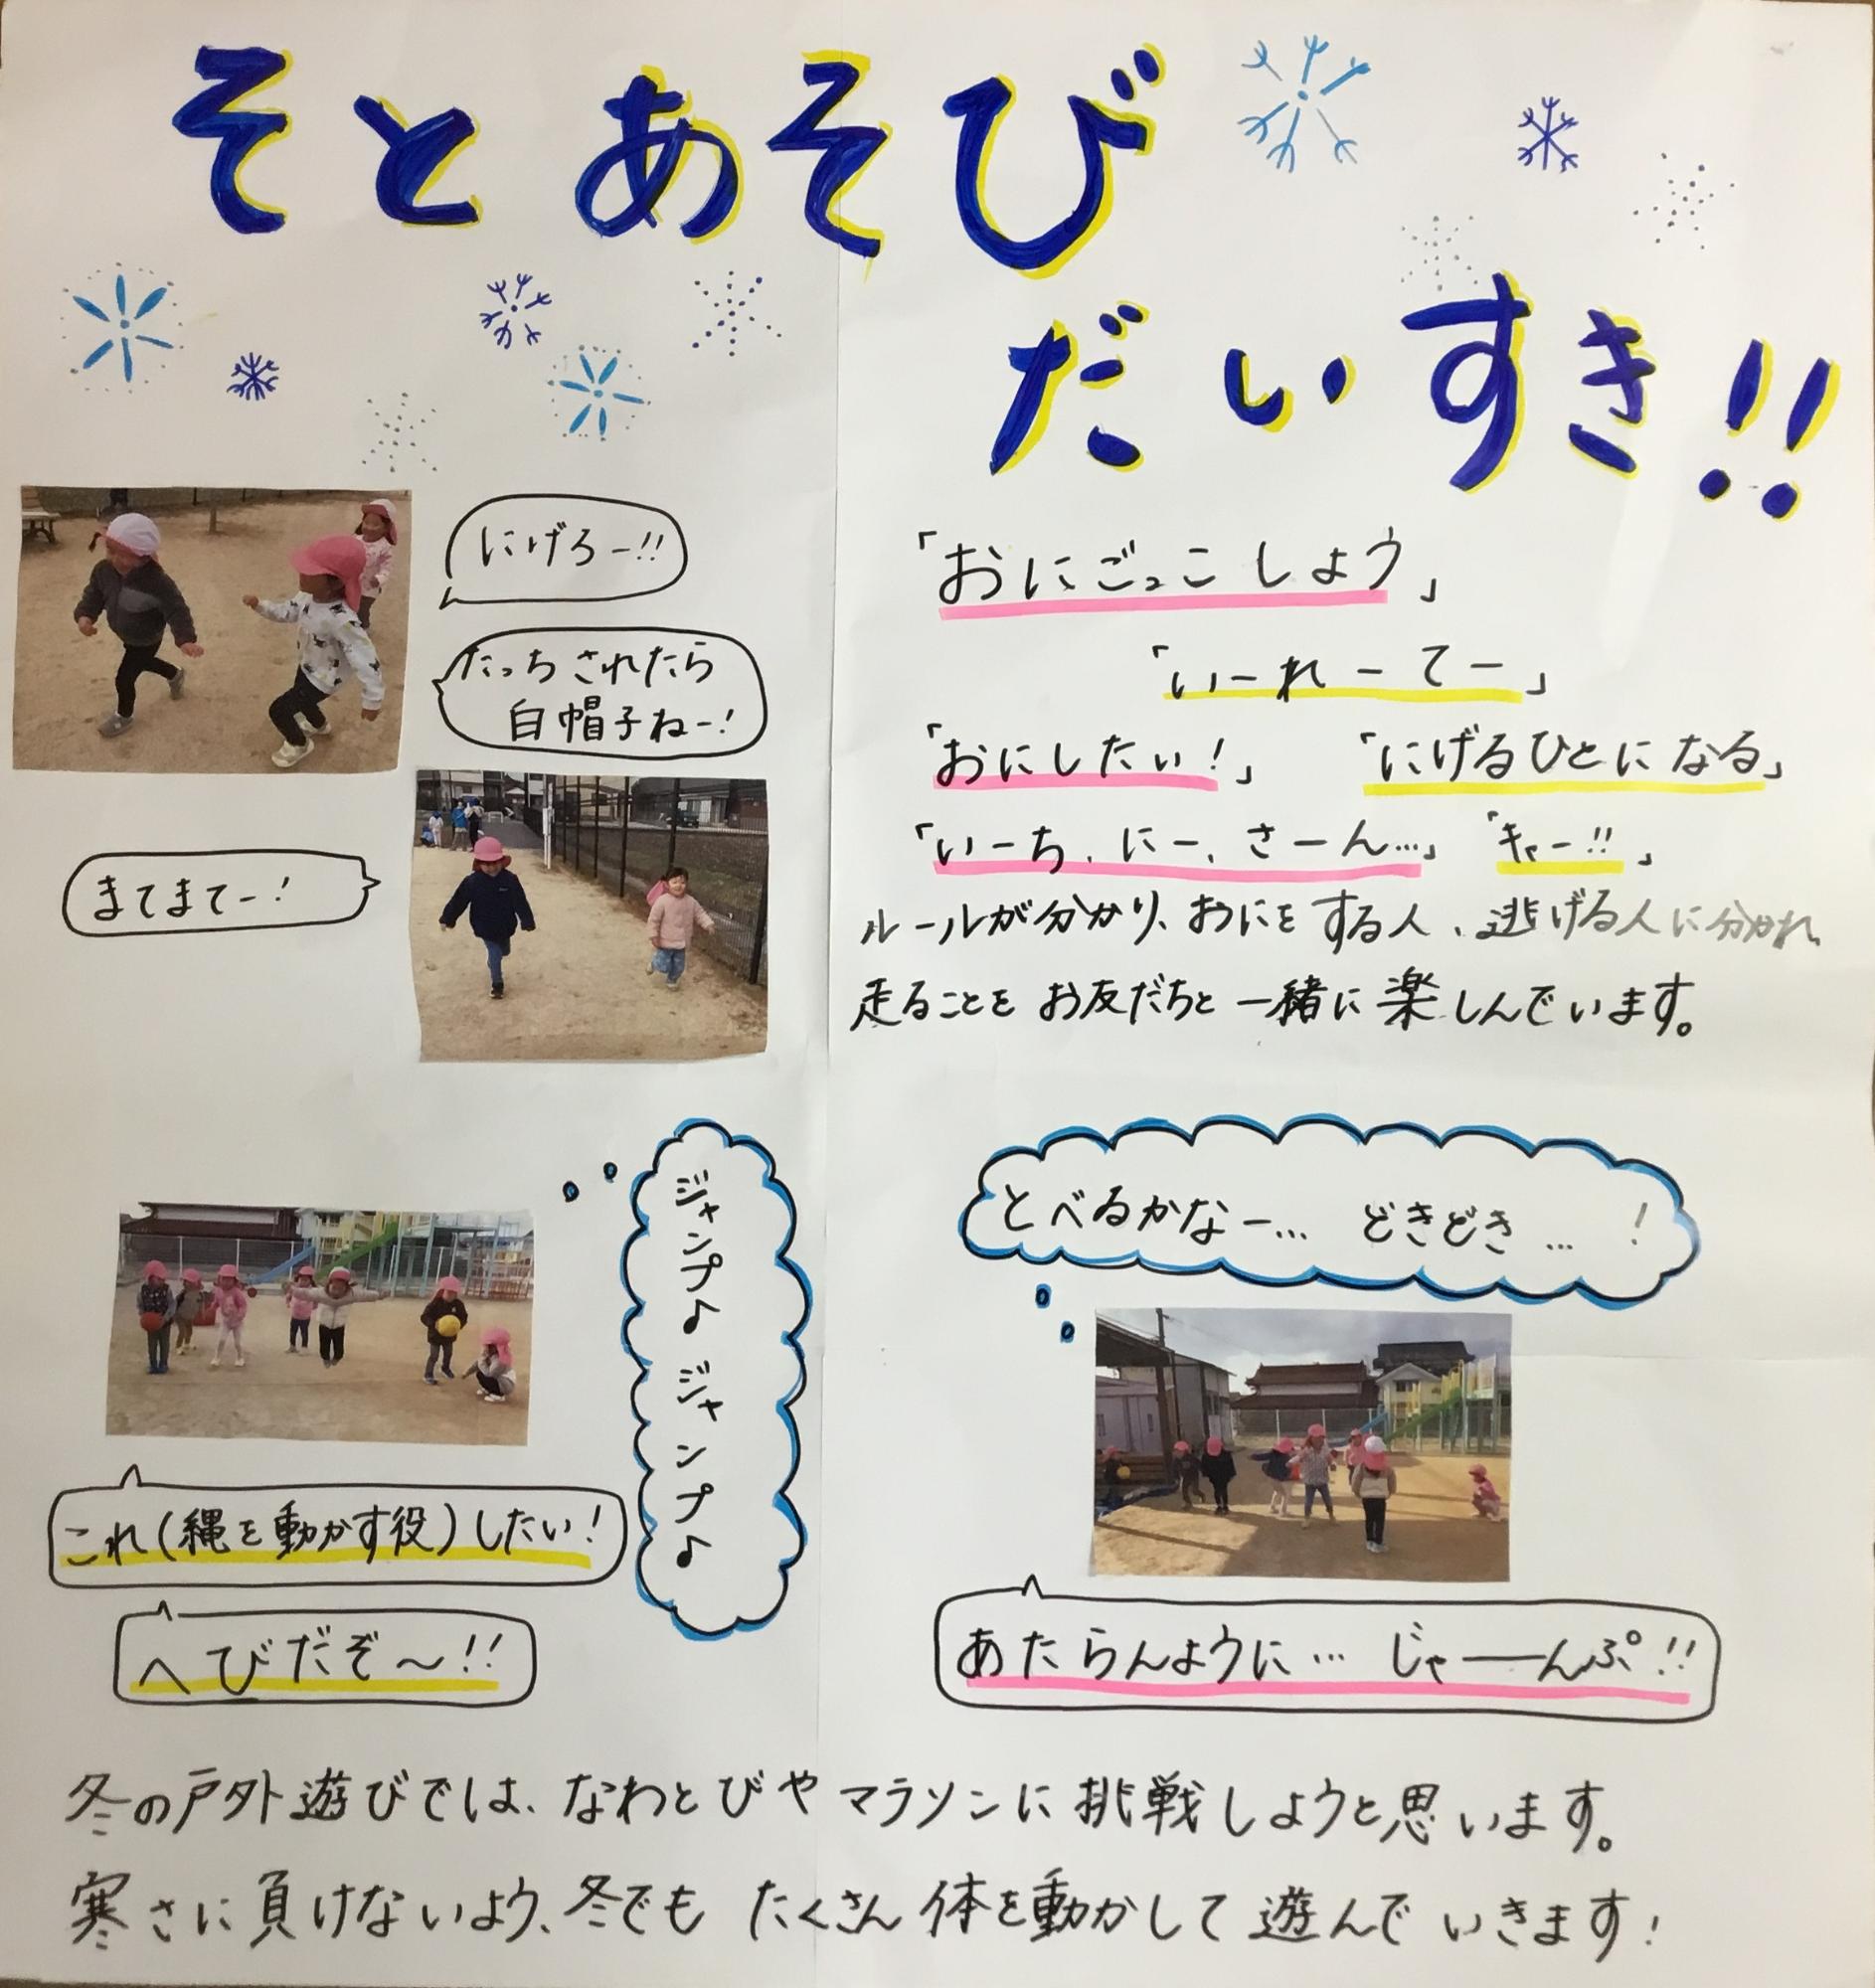 そとあそび
だいすき!!
にげろー!!
たっちされたら
白帽子ねー!
まてまてー!
「おにごっこしょう」
「いーれーてー」
「おにしたい!」 「にげるひとになる」
「いーち、にー、さーん…」 「キャー!!」
ルールが分かり、おにをする人、逃げる人に分かれ、
走ることをお友だちと一緒に楽しんでいます。
ジャンプ♪ ジャンプ♪
これ(縄を動かす役)したい!
へびだぞ〜!!
とべるかなー… どきどき…!
あたらんように… じゃーんぷ!!
冬の戸外遊びでは、なわとびやマラソンに挑戦しようと思います。
寒さに負けないよう、冬でもたくさん体を動かして遊んでいきます!